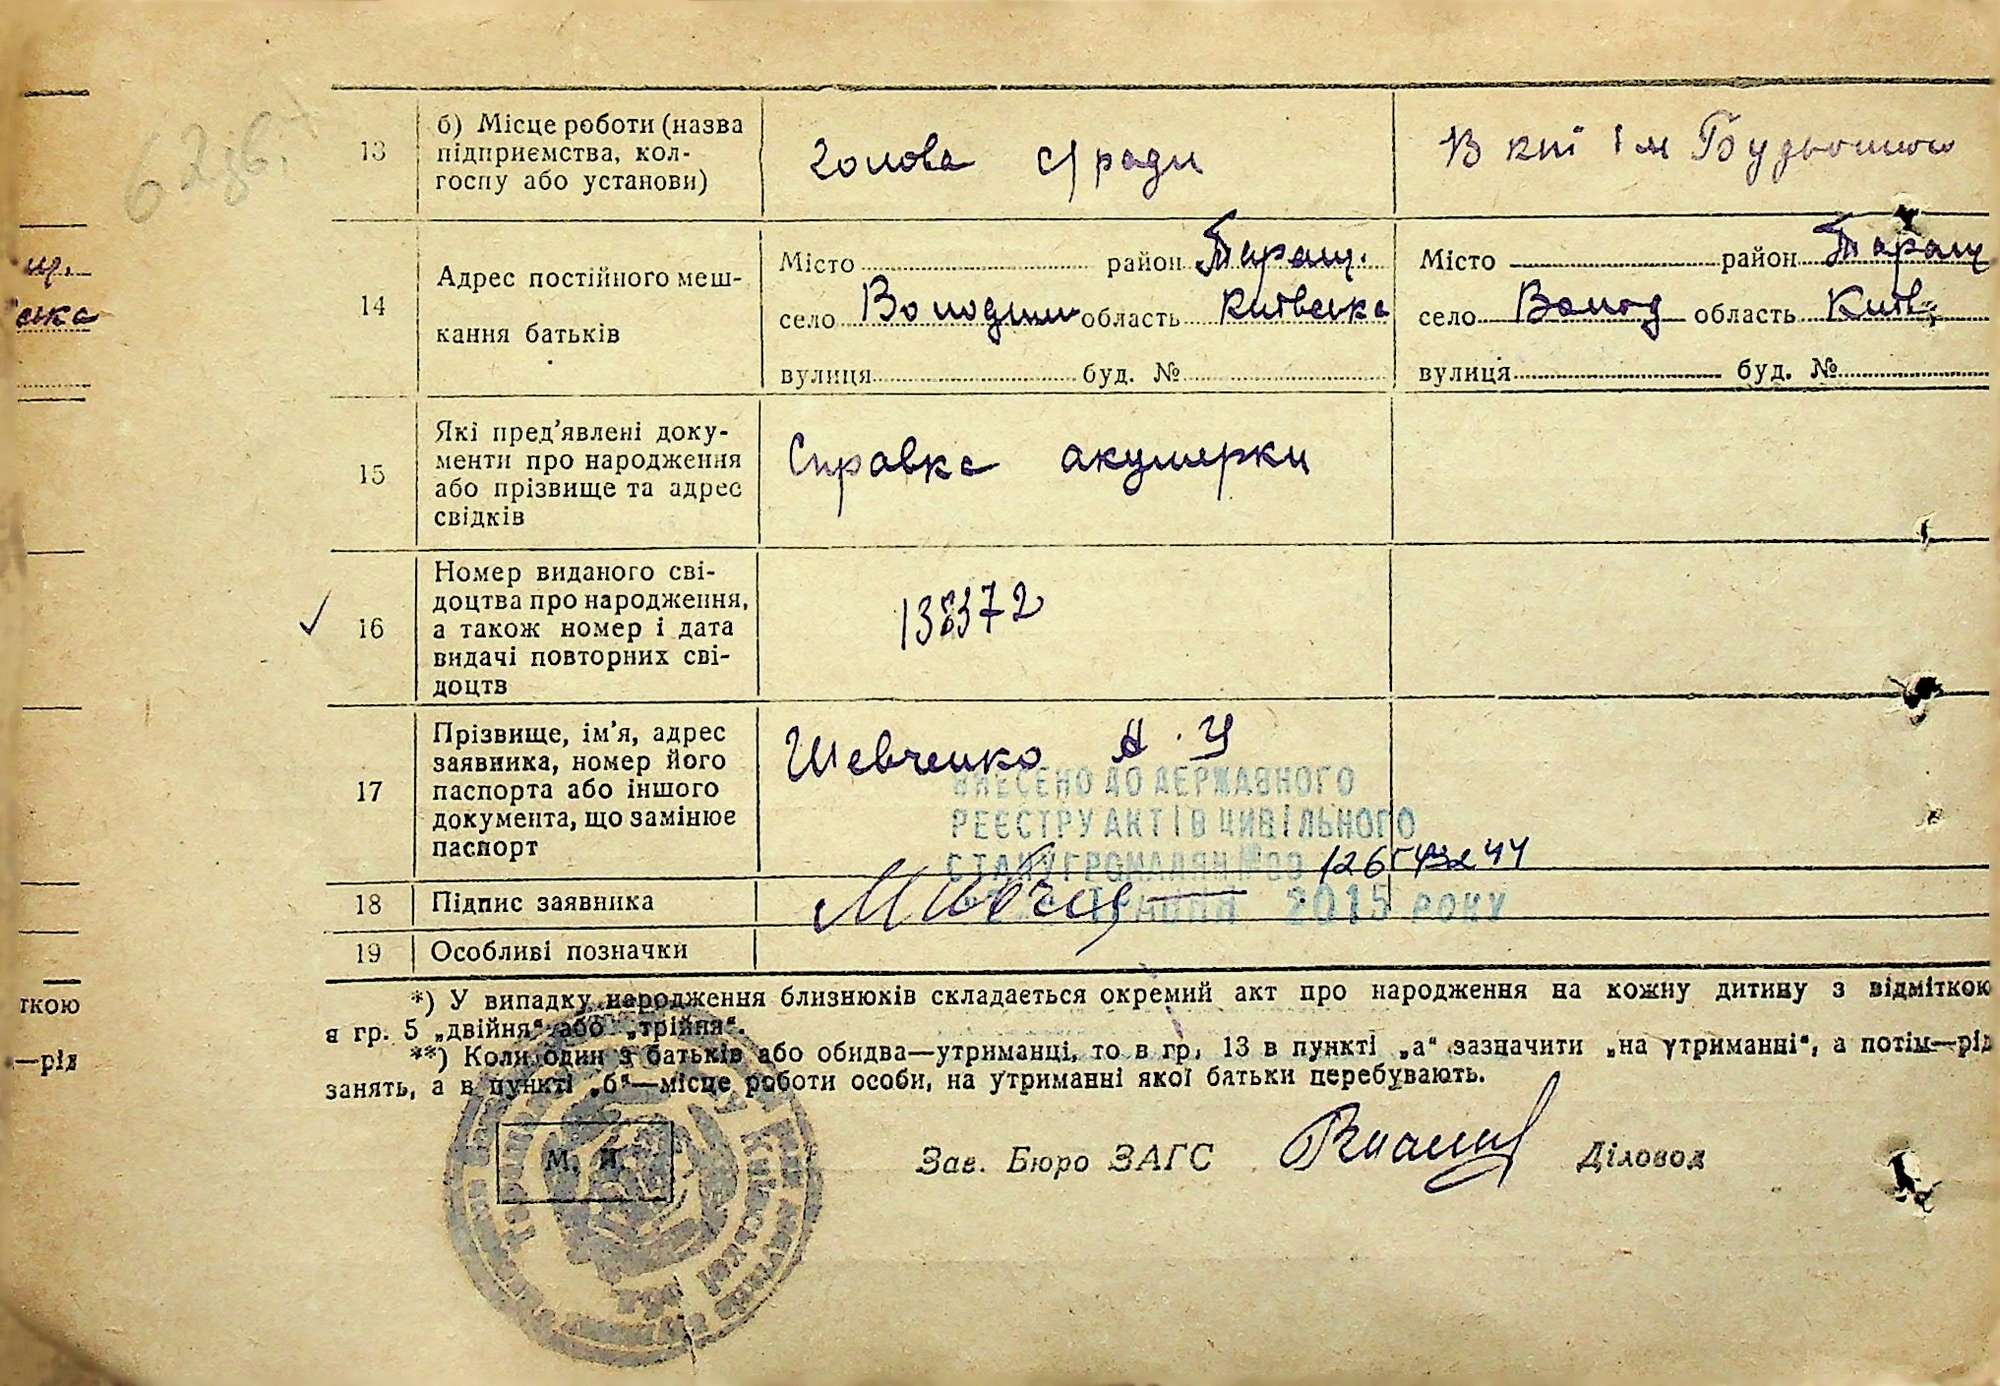 13
б) Місце роботи (назва
підприємства, кол-
госпу або установи)
голова с/ради
В кпі ім Будьоного
14
Адрес постійного меш-
кання батьків
Місто район Таращ.
село область Київська
вулиця буд. №
Місто район Таращ
село Волод область Київ.
вулиця буд. №
15
Які пред’явлені доку-
менти про народження
або прізвище та адрес
свідків
Справка акушерки
16
Номер виданого сві-
доцтва про народження,
а також номер і дата
видачі повторних сві-
доцтв
138372
17
Прізвище, ім’я, адрес
заявника, номер його
паспорта або іншого
документа, що замінює
паспорт
Шевченко А. У
ВНЕСЕНО ДО ДЕРЖАВНОГО
РЕЄСТРУ АКТІВ ЦИВІЛЬНОГО
СТАНУ ГРОМАДЯН №00
ТРАВНЯ 2015 РОКУ
18
Підпис заявника
19
Особливі позначки
*) У випадку народження близнюків складається окремий акт про народження на кожну дитину з відміткою
в гр. 5 „двійня“ або „трійня“.
**) Коли один з батьків або обидва—утриманці, то в гр. 13 в пункті „а“ зазначити „на утриманні“, а потім—рід
занять, а в пункті „б“—місце роботи особи, на утриманні якої батьки перебувають.
М. П.
Зав. Бюро ЗАГС
Діловод
ська
ткою
—рід